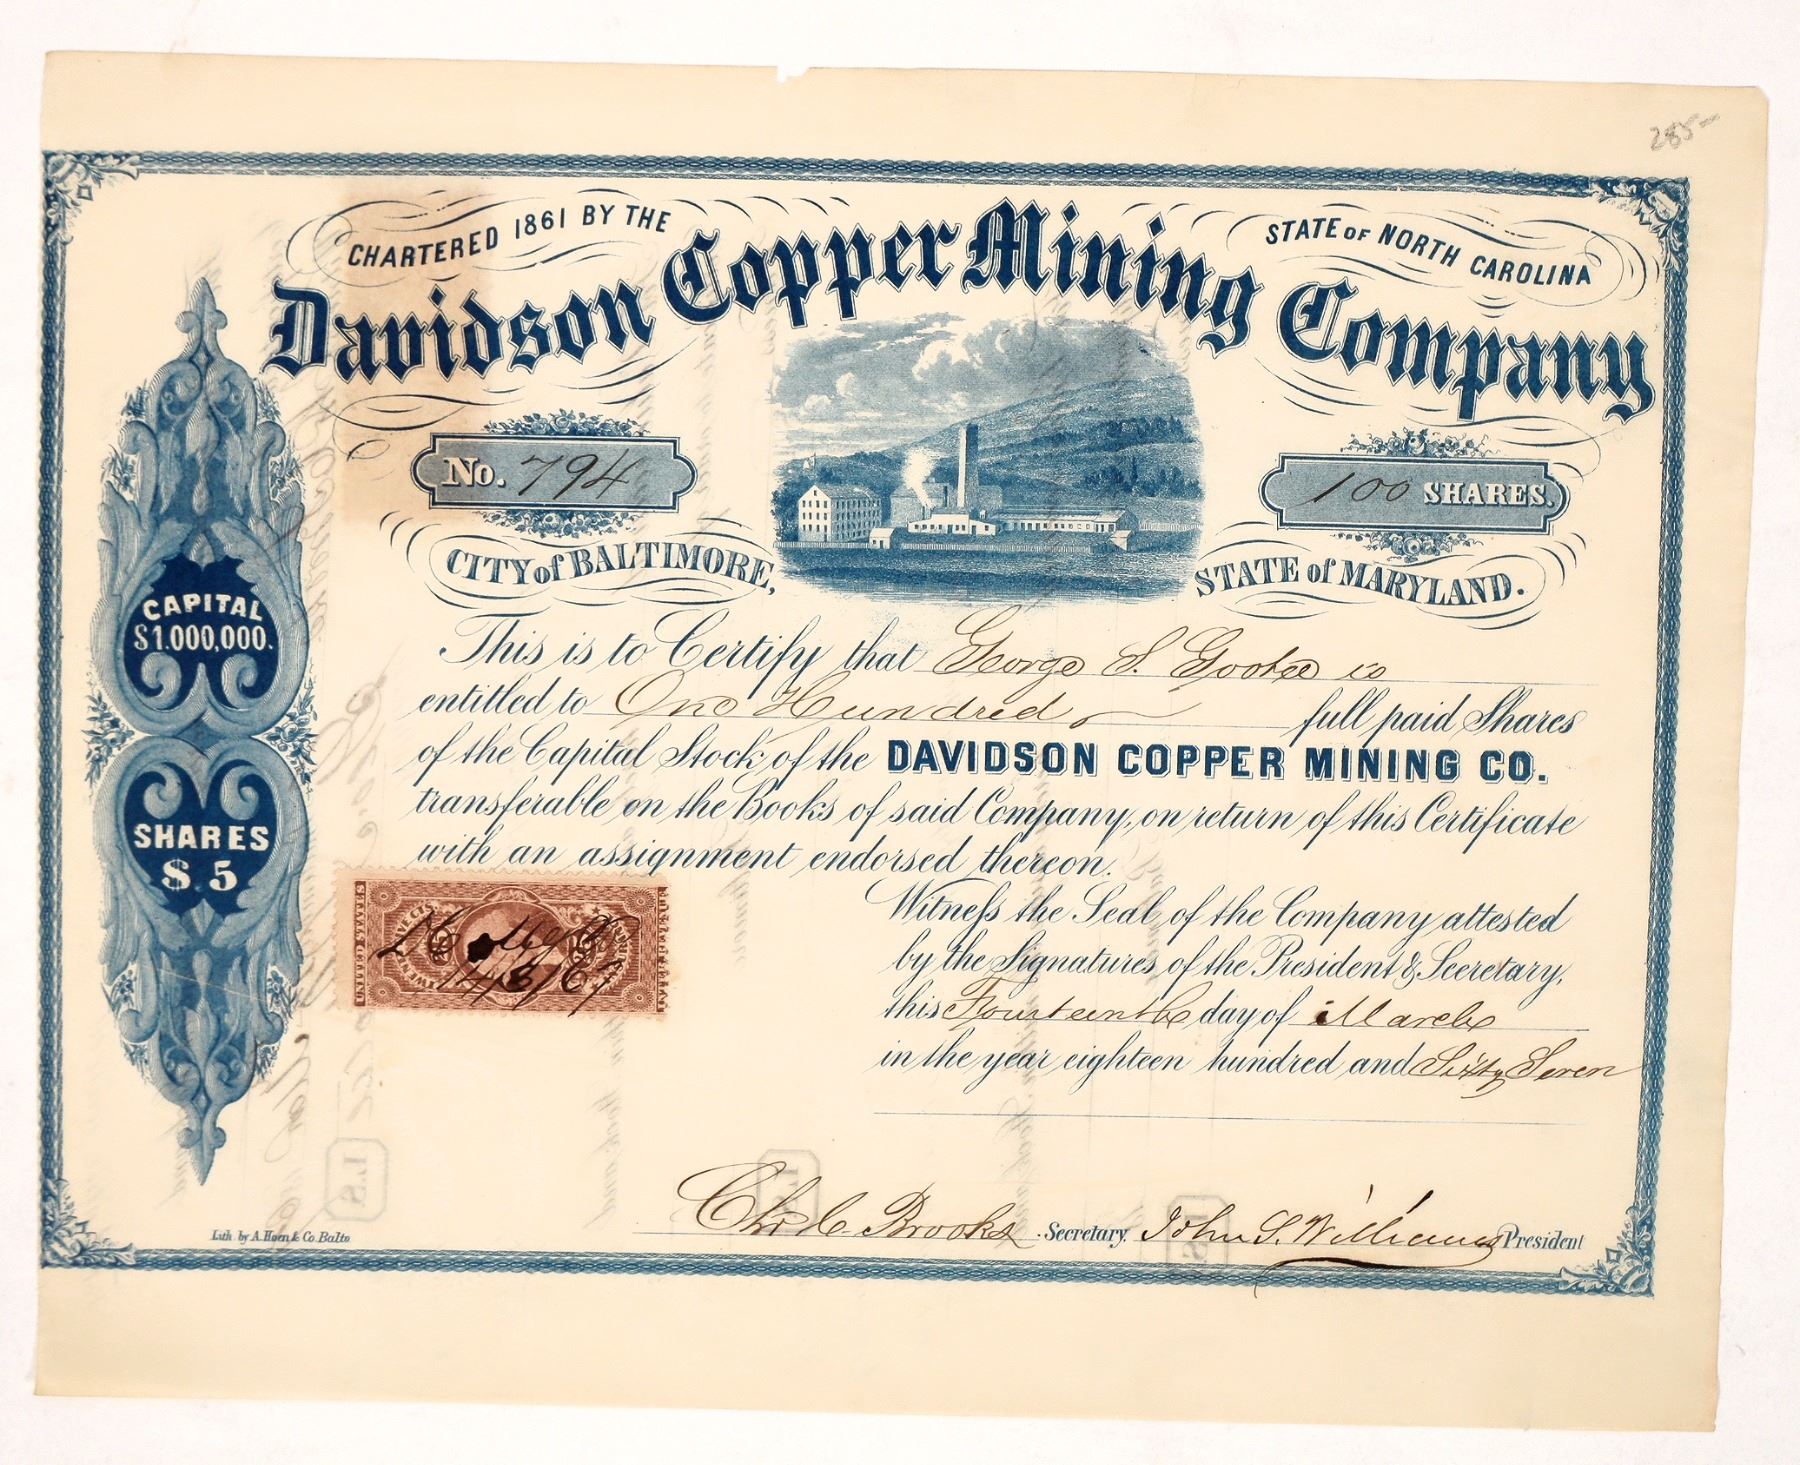 285-
CHARTERED 1861 BY THE
STATE OF NORTH CAROLINA
Davidson Copper Mining Company
No. 794
100 SHARES.
CITY of BALTIMORE,
STATE of MARYLAND.
CAPITAL
$1.000,000.
SHARES
$ 5
This is to Certify that George S. is
entitled to One Hundred full paid Shares
of the Capital Stock of the DAVIDSON COPPER MINING CO.
transferable on the Books of said Company, on return of this Certificate
with an assignment endorsed thereon.
Witness the Seal of the Company attested
by the Signatures of the President & Secretary,
this Fourteenth day of March
in the year eighteen hundred and Sixty Seven
14/3/67
Chs C. Brooks Secretary. John S. Williams President
Lith. by A. Hoen & Co. Balto